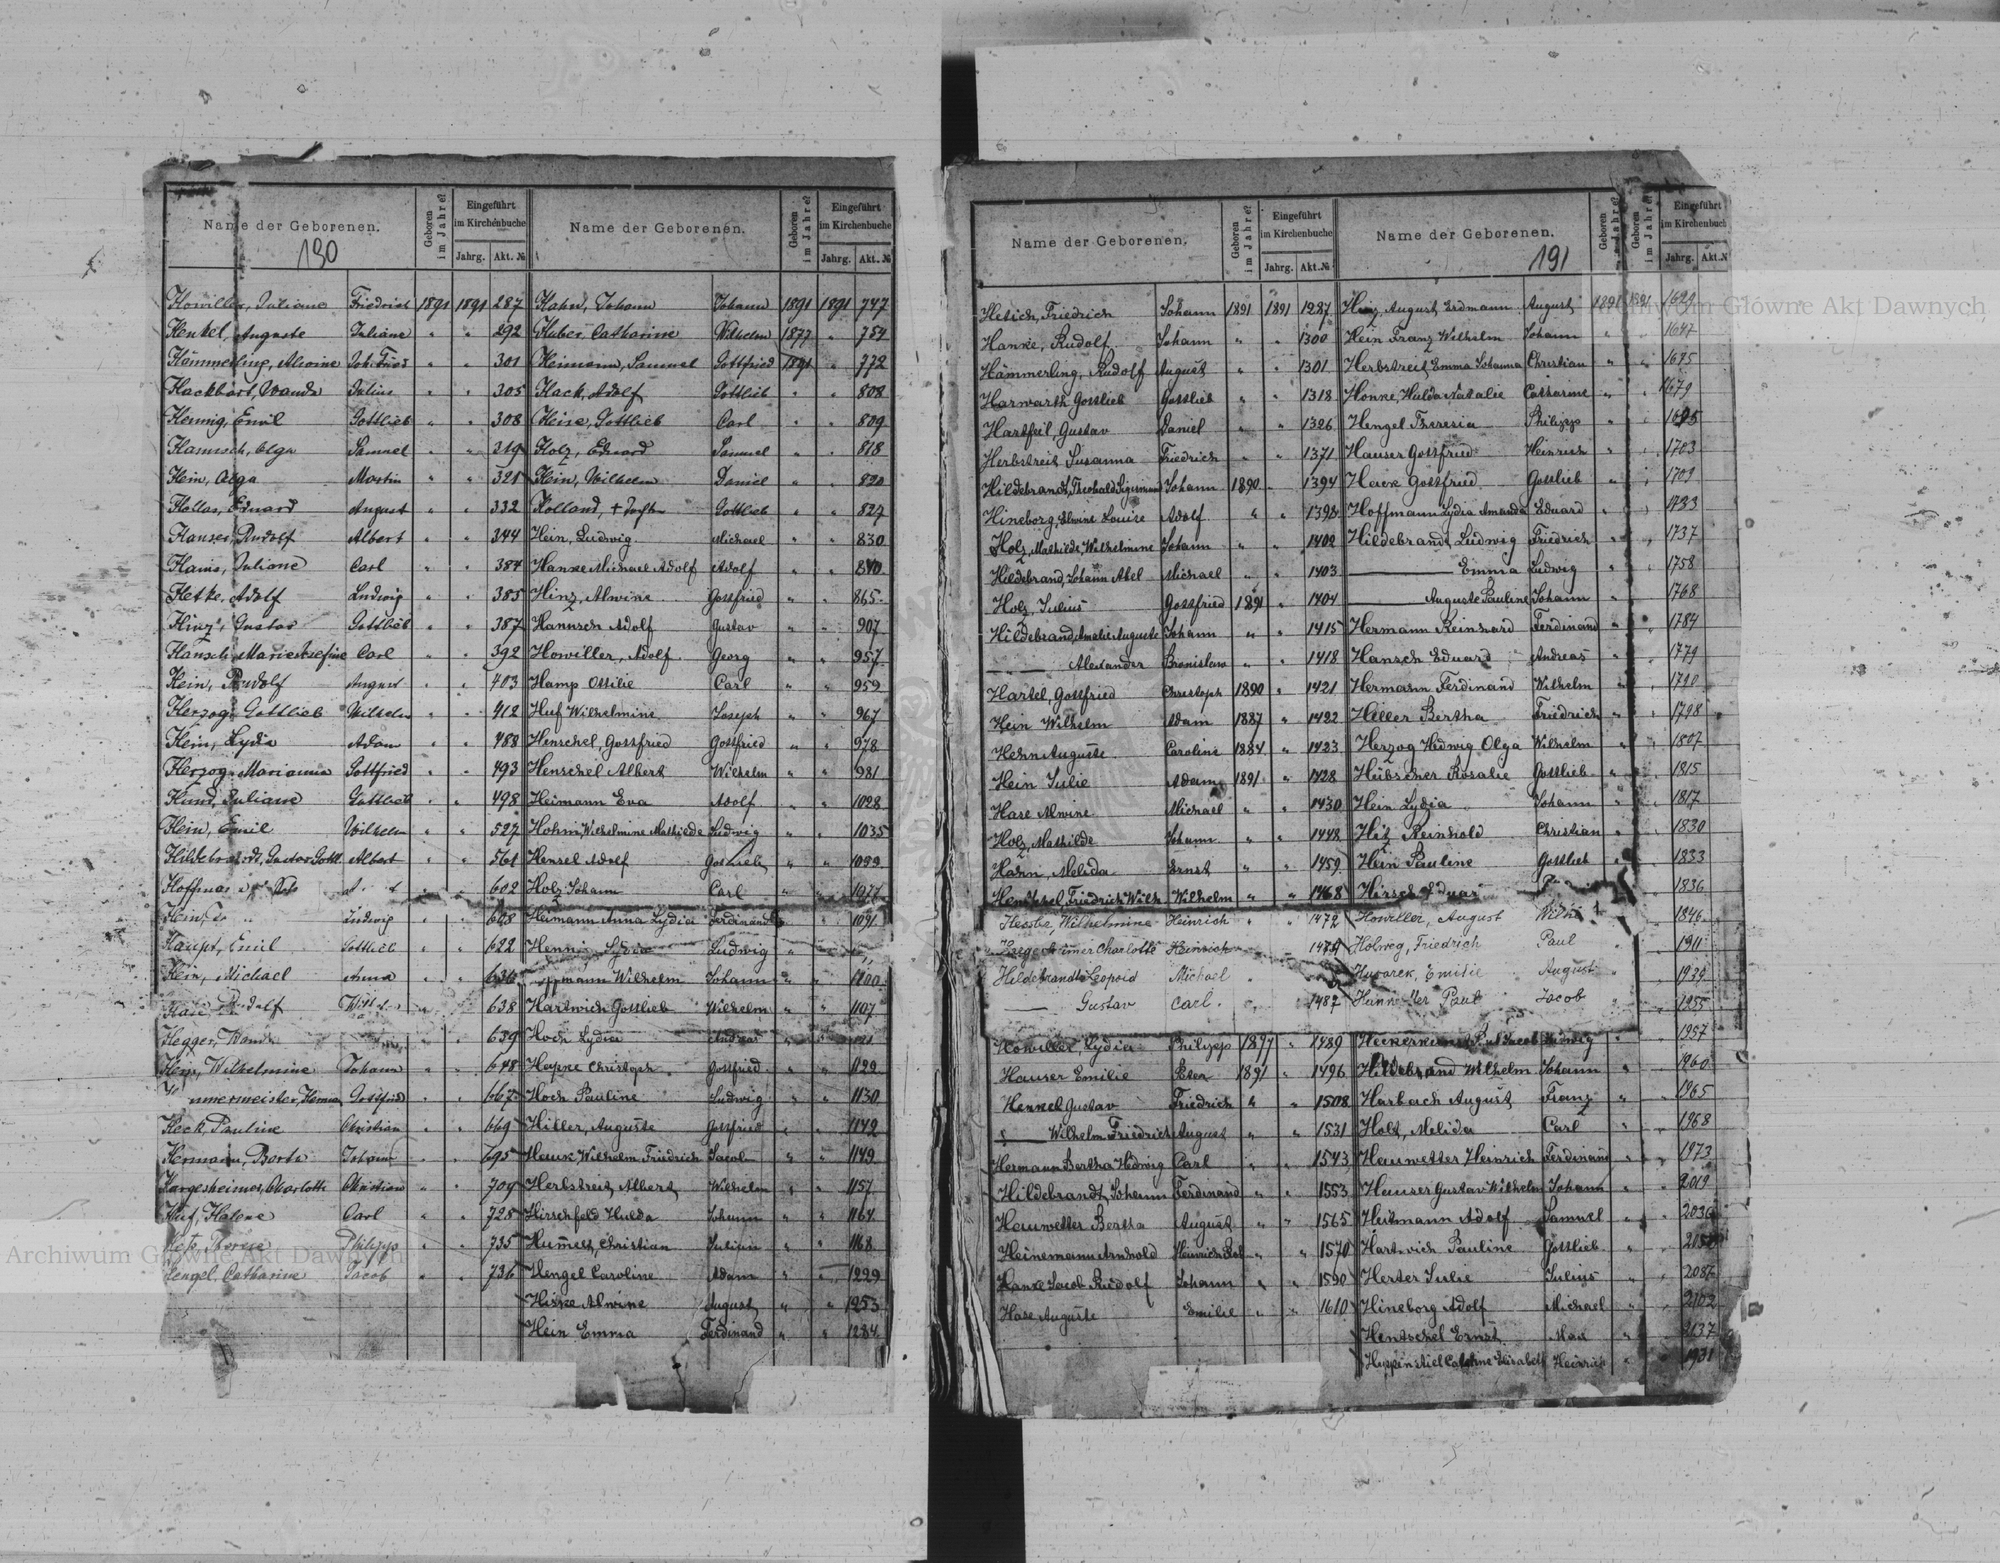 Name der Geborenen.
Geboren im Jahre?
Eingeführt im Kirchenbuche
Jahrg. Akt. №
Name der Geborenen.
Geboren im Jahre?
Eingeführt im Kirchenbuche
Jahrg. Akt. №
190
Howiller, Juliane Friedrich 1891 1891 287
Henkel, Auguste Juliane " " 292
Hämmerling, Alwine Joh. Fried " " 301
Hackbart, Wanda Julius " " 305
Hennig, Emil Gottlieb " " 308
Hamisch, Olga Samuel " " 319
Hein, Olga Martin " " 321
Hollas, Eduard August " " 332
Hauser, Rudolf Albert " " 344
Juliane Carl " " 384
Hetke, Adolf Ludwig " " 385
Hinz, Gustav Gottlieb " " 387
Carl " " 392
Hein, Rudolf August " " 403
Herzog, Gottlieb Wilhelm " " 412
Hein, Lydia Adam " " 488
Herzog, Marianna Gottfried " " 493
Hund, Juliane Gottlieb " " 498
Hein, Emil Wilhelm " " 527
Hildebrandt, Gustav Gottl. Albert " " 561
602
Hein, Ludwig " " 608
Haupt, Emil Gottlieb " " 622
Hein, Michael Anna " " 636
Rudolf 638
Hegger, Wanda 639
Hein, Wilhelmine Johann " " 648
Gottfried " " 667
Heck, Pauline Christian " " 669
Hermann, Berta Johann " " 695
Hargesheimer, Charlotte Christian " " 709
Huf, Helene Carl " " 728
Philipp " " 735
Hengel, Catharine Jacob " " 736
Hahn, Johann Johann 1891 1891 747
Huber, Catharine Wilhelm 1877 " 754
Heimann, Samuel Gottfried 1891 " 772
Hack, Adolf Gottlieb " " 808
Heise, Gottlieb Carl " " 809
Holz, Eduard Samuel " " 818
Hein, Wilhelm Daniel " " 820
Holland, + Gottlieb " " 827
Hein, Ludwig Michael " " 830
Hanke Michael Adolf Adolf " " 840
Hinz, Alwine Gottfried " " 865
Hannsch Adolf Gustav " " 907
Howiller, Adolf Georg " " 957
Hamp Ottilie Carl " " 959
Huf Wilhelmine Joseph " " 967
Henschel, Gottfried Gottfried " " 978
Henschel Albert Wilhelm " " 981
Heimann Eva Adolf " " 1028
Hohm, Wilhelmine Mathilde Ludwig " " 1035
Hensel Adolf Gottlieb " "
Holz Johann Carl " "
Heimann Anna Lydia Ferdinand " " 1091
Hennig Lydia Ludwig "
Wilhelm Johann " " 1100
Hartwich Gottlieb Wilhelm " " 1107
Hoch Lydia Andreas " "
Christoph Gottfried " " 1129
Hoch Pauline Ludwig " " 1130
Hiller, Auguste Gottfried " " 1142
Hauk Wilhelm Friedrich Jacob " " 1149
Herbstreit, Albert Wilhelm " " 1157
Hirschfeld Hulda Johann " " 1164
Christian Julian " " 1168
Hengel Caroline Adam " " 1229
Hiske Alwine August " " 1253
Hein Emma Ferdinand " " 1284
Name der Geborenen.
Geboren im Jahre?
Eingeführt im Kirchenbuche
Jahrg. Akt. №
Name der Geborenen.
Geboren im Jahre?
Geboren im Jahre?
Eingeführt im Kirchenbuch
Jahrg. Akt. N
191
Hetich, Friedrich Johann 1891 1891 1287
Hanke, Rudolf Johann " " 1300
Hämmerling, Rudolf August " " 1301
Harwarth Gottlieb Gottlieb " " 1318
Hartfeil, Gustav Daniel " " 1326
Herbstreit Susanna Friedrich " " 1371
Hildebrandt, Theobald Sigismund Johann 1890 " 1394
Hineborg, Elwine Louise Adolf " " 1398
Holz, Mathilde Wilhelmine Johann " " 1402
Hildebrand, Johann Abel Michael " " 1403
Holz, Julius Gottfried 1891 " 1404
Hildebrand, Amalie Auguste Johann " " 1415
—— Alexander Bronislaw " " 1418
Hartel, Gottfried Christoph 1890 " 1421
Hein Wilhelm Adam 1887 " 1422
Hehn Auguste Caroline 1884 " 1423
Hein Julie Adam 1891 " 1428
Hase Alwine Michael " " 1430
Holz, Mathilde Johann " " 1448
Hahn, Melida Ernst " " 1459
Hentschel, Friedrich Wilh. Wilhelm " " 1468
Wilhelmine Heinrich " " 1472
Charlotte Heinrich
Hildebrandt Leopold Michael
—— Gustav Carl. " 1487
Howiller, Lydia Philipp 1877 " 1489
Hauser Emilie Peter 1891 " 1496
Henkel Gustav Friedrich " " 1508
—— Wilhelm Friedrich August " " 1531
Hermann Bertha Hedwig Carl " " 1543
Hildebrandt, Johann Ferdinand " " 1553
Hauwetter Bertha August " " 1565
Heinemann Arnhold Heinrich " " 1570
Hanke Jacob Rudolf Johann " " 1590
Hase Auguste Emilie " " 1610
Hinz, August Erdmann August 1891 1891 1624
Hein Franz Wilhelm Johann " " 1647
Herbstreit Emma Johanna Christian " " 1675
Honke, Hulda Natalie Catharine " " 1679
Hengel Theresia Philipp " " 1695
Hauser Gottfried Heinrich " " 1703
Hack Gottfried Gottlieb " " 1709
Hoffmann Lydia Amanda Eduard " " 1733
Hildebrandt Ludwig Friedrich " " 1737
—— Emma Ludwig " " 1758
—— Auguste Pauline Johann " " 1768
Hermann Reinhard Ferdinand " " 1784
Hansch Eduard Andreas " " 1779
Hermann Ferdinand Wilhelm " " 1790
Hiller Bertha Friedrich " " 1798
Herzog Hedwig Olga Wilhelm " " 1807
Hübscher Rosalie Gottlieb " " 1815
Hein Lydia Johann " " 1817
Reinhold Christian " " 1830
Hein Pauline Gottlieb " " 1833
Hirsch 1836
Howiller, August 1846
Holweg, Friedrich Paul 1911
Emilie August " 1939
Paul Jacob " 1955
Ludwig " 1957
Hildebrand Wilhelm Johann " " 1960
Harbach August Franz " " 1965
Holz, Melida Carl " " 1968
Hauwetter Heinrich Ferdinand " " 1973
Hauser Gustav Wilhelm Johann " " 2019
Heitmann Adolf Samuel " " 2036
Hartwich Pauline Gottlieb " "
Herter Julie Julius " " 2087
Hineborg Adolf Michael " " 2102
Hentschel Ernst Max " " 2137
Elisabeth Heinrich " " 1931
Archiwum Główne Akt Dawnych
Archiwum Główne Akt Dawnych